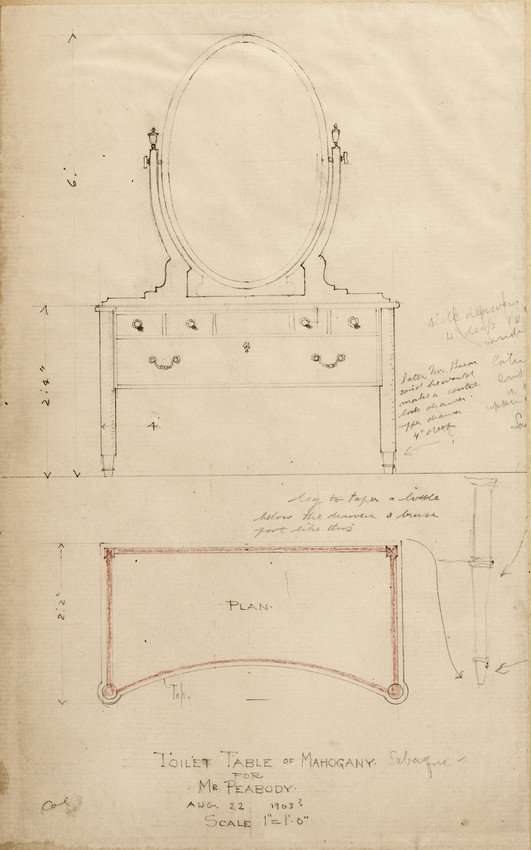 6'
2'4"
4'
side drawers
4" deep
later Mr. Bacon
said he would
make a centre
lock drawer.
upper drawer
4" deep
leg to taper a little
below the drawers & brass
foot like this
2'2"
PLAN.
Top.
TOILET TABLE OF MAHOGANY.
FOR
MR PEABODY.
AUG. 22 1903
SCALE 1"=1'-0"